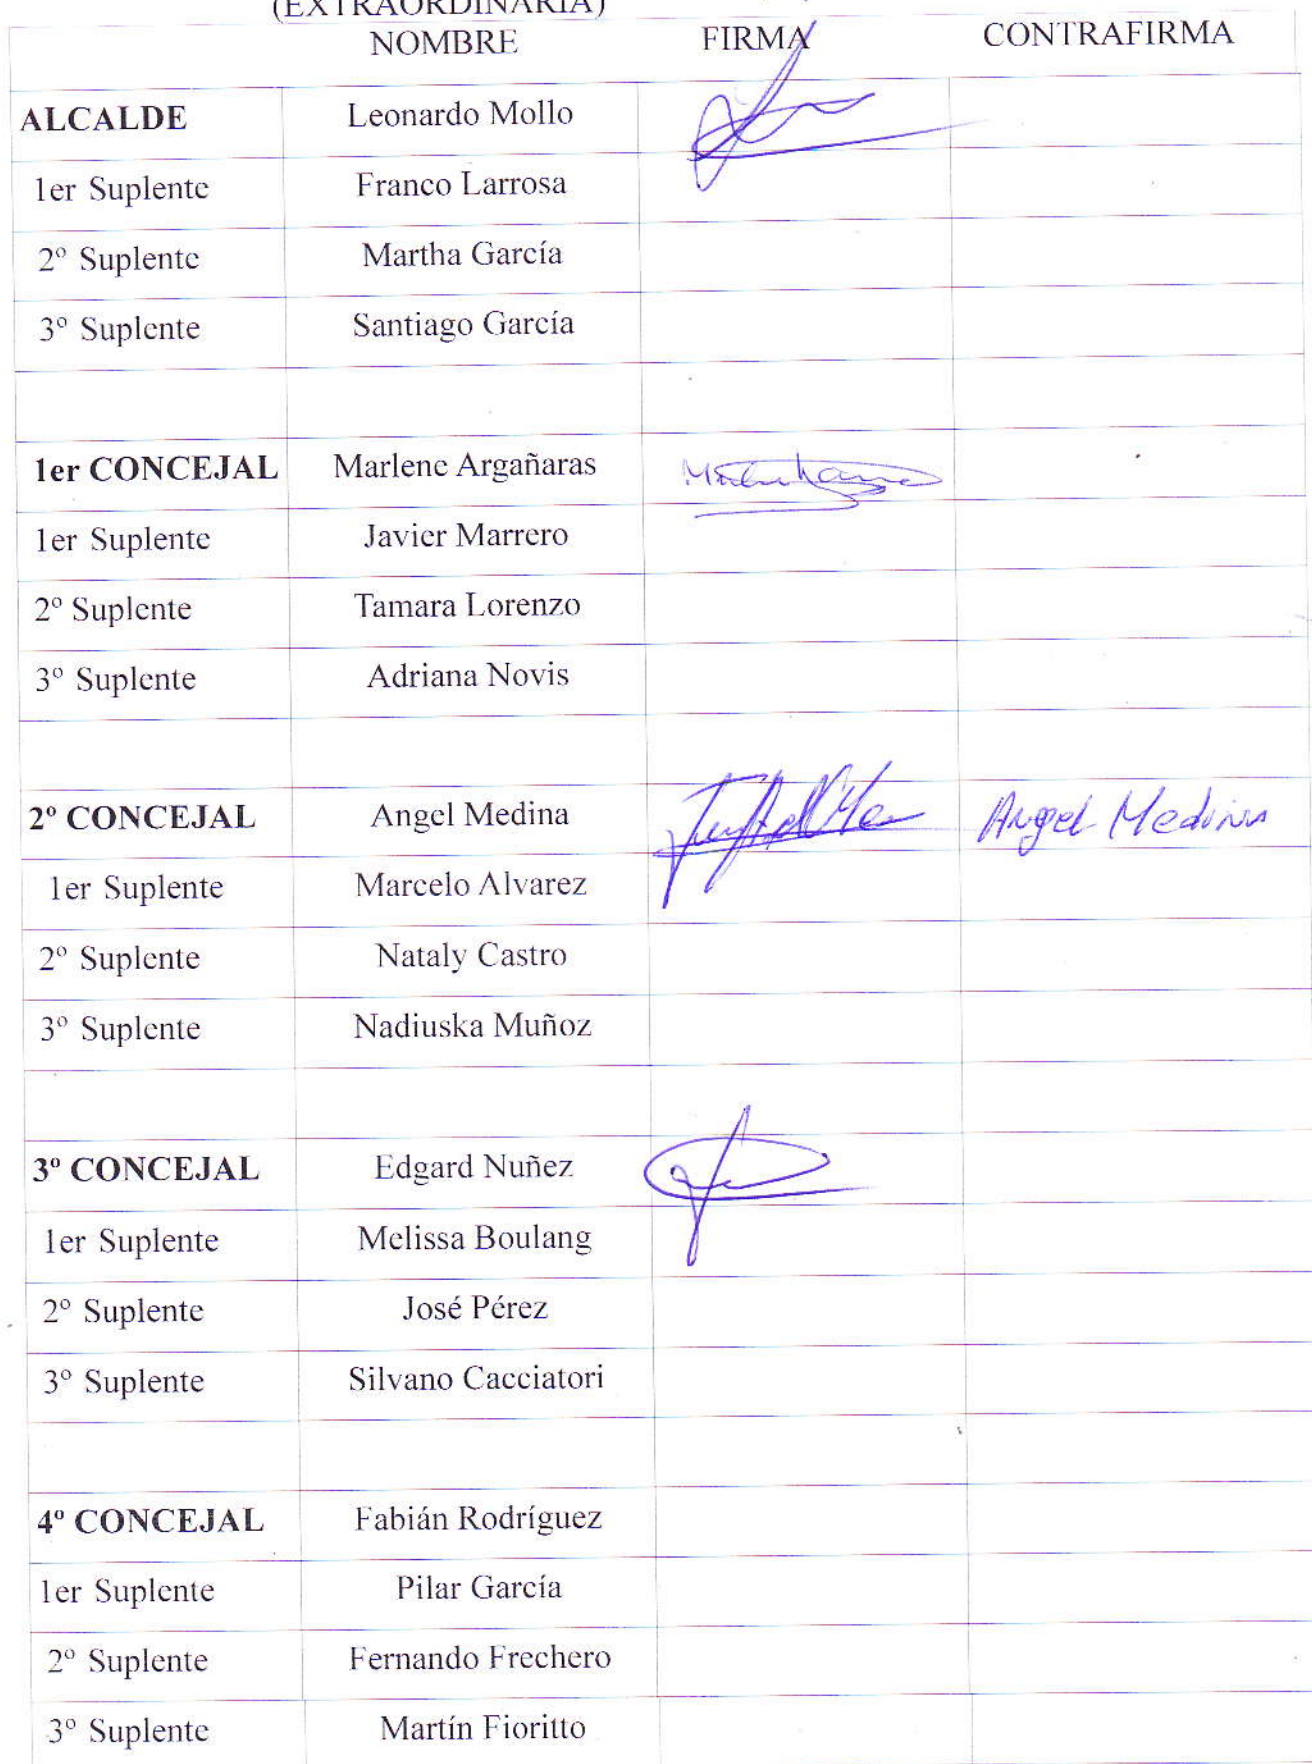 (EXTRAORDINARIA)
NOMBRE FIRMA CONTRAFIRMA
ALCALDE Leonardo Mollo
1er Suplente Franco Larrosa
2º Suplente Martha García
3º Suplente Santiago García
1er CONCEJAL Marlene Argañaras
1er Suplente Javier Marrero
2º Suplente Tamara Lorenzo
3º Suplente Adriana Novis
2º CONCEJAL Angel Medina Angel Medina
1er Suplente Marcelo Alvarez
2º Suplente Nataly Castro
3º Suplente Nadiuska Muñoz
3º CONCEJAL Edgard Nuñez
1er Suplente Melissa Boulang
2º Suplente José Pérez
3º Suplente Silvano Cacciatori
4º CONCEJAL Fabián Rodríguez
1er Suplente Pilar García
2º Suplente Fernando Frechero
3º Suplente Martín Fioritto